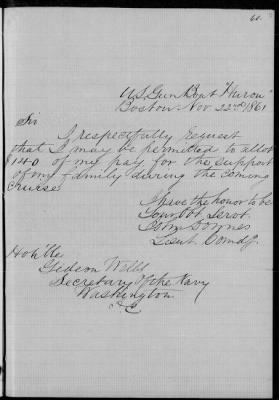 61.
U.S. Gun Boat "Huron"
Boston Nov 22nd 1861
Sir
I respectfully request
that I may be permitted to allot
$140 of my pay for the support
of my family during the coming
cruise
I have the honor to be
Your Obt Servt.
Jno. Downes
Lieut. Comdg.
Honble
Gideon Wells
Secretary of the Navy
Washington